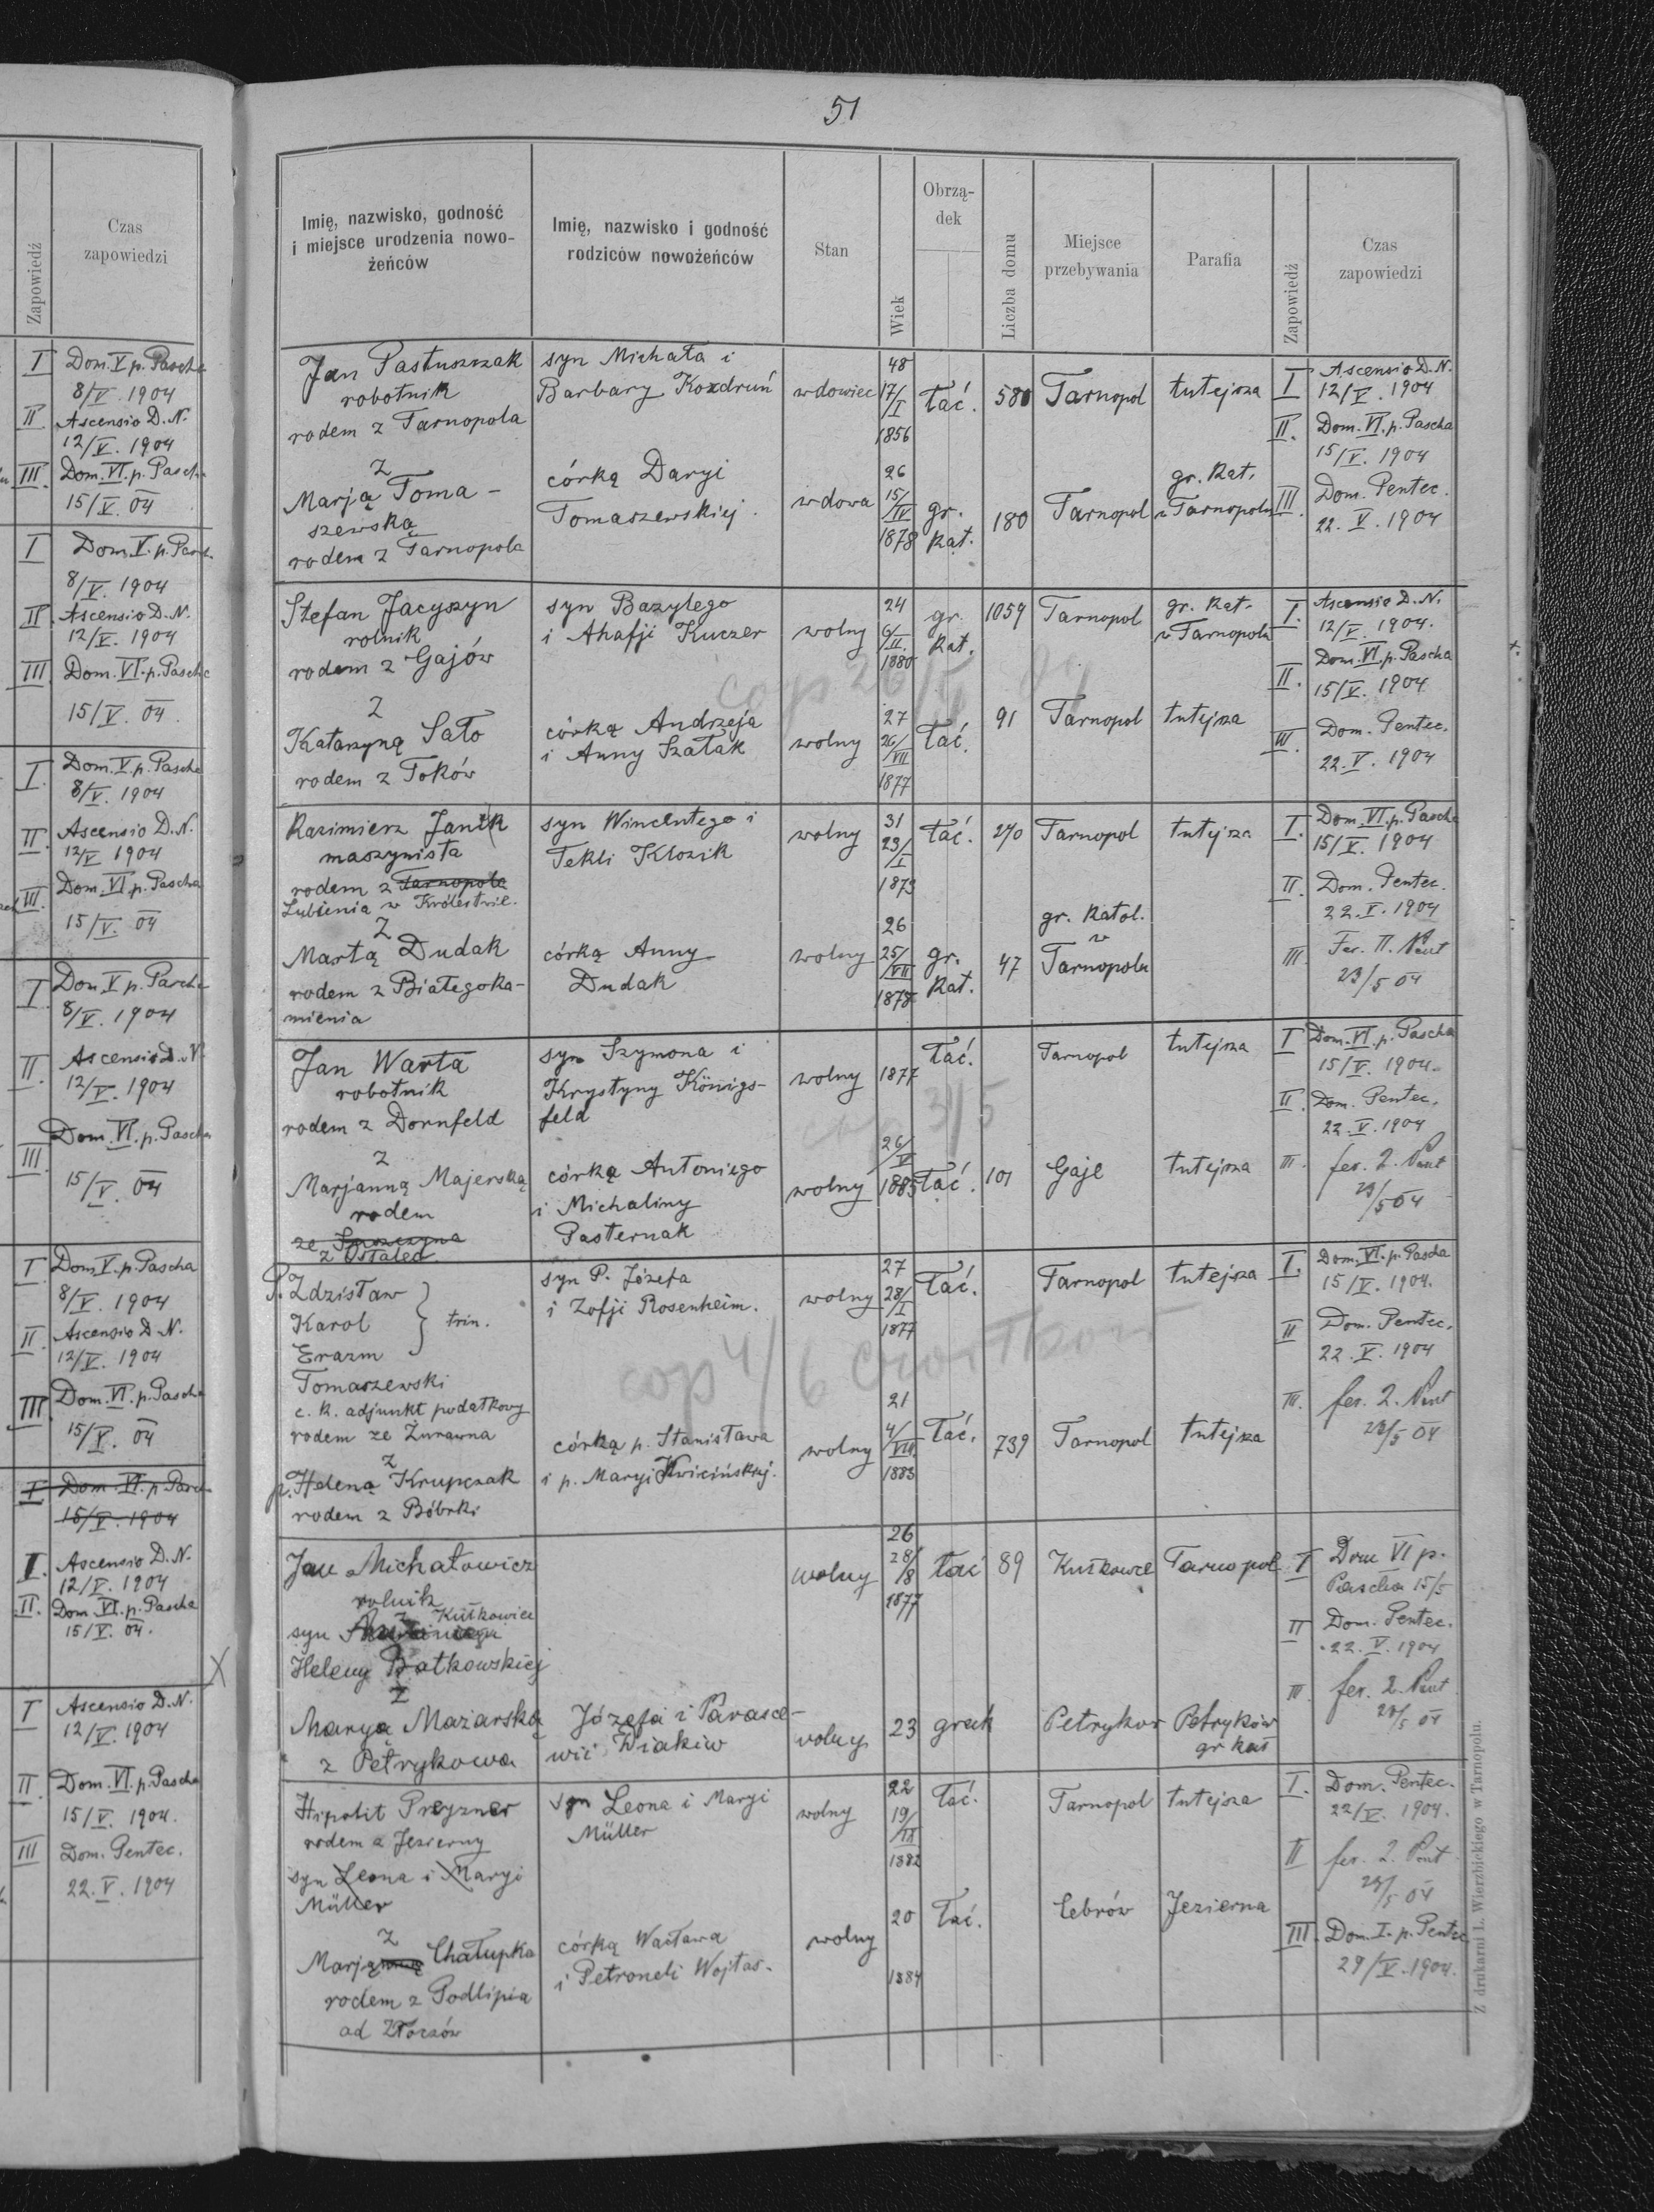 Zapowiedź
Czas
zapowiedzi
I Dom. V p. Pascha
8/V. 1904
II Ascensio D. N.
12/V. 1904
III Dom. VI. p. Pascha
15/V. 04
I Dom. V. p. Pasch
8/V. 1904
II Ascensio D. N.
12/V. 1904
III Dom. VI. p. Pascha
15/V. 04.
I. Dom. V. p. Pascha
8/V. 1904
II. Ascensio D. N.
12/V 1904
III. Dom. VI. p. Pascha
15/V. 04
I. Dom V p. Pascha
8/V. 1904
II. Ascensio D. N.
12/V. 1904
III. Dom. VI. p. Pascha
15/V. 04
I Dom. V. p. Pascha
8/V. 1904
II Ascensio D. N.
12/V. 1904
III Dom. VI. p. Pascha
15/V. 04
I Dom. VI. p. Pasch
15/V. 1904
I. Ascensio D. N.
12/V. 1904
II. Dom. VI. p. Pascha
15/V. 04.
X
I Ascensio D. N.
12/V. 1904
II Dom. VI. p. Pascha
15/V. 1904.
III Dom. Pentec.
22. V. 1904
51
Imię, nazwisko, godność
i miejsce urodzenia nowo-
żeńców
Imię, nazwisko i godność
rodziców nowożeńców
Stan
Wiek
Obrzą-
dek
Liczba domu
Miejsce
przebywania
Parafia
Zapowiedź
Czas
zapowiedzi
Jan Pastuszczak
robotnik
rodem z Tarnopola
syn Michała i
Barbary Kozdruń
wdowiec
48
17/I
1856
łać.
580
Tarnopol
tutejsza
I Ascensio D. N.
12/V. 1904
II. Dom. VI. p. Pascha
15/V. 1904
z
Marją Toma-
szewską
rodem z Tarnopola
córką Daryi
Tomaszewskiej.
wdowa
26
15/IV
1878
gr.
kat.
180
Tarnopol
gr. kat.
w Tarnopolu
III Dom. Pentec.
22. V. 1904
Stefan Jacyszyn
rolnik
rodem z Gajów
syn Bazylego
i Ahafji Kuczer
wolny
24
6/II.
1880
gr.
kat.
1059
Tarnopol
gr. kat.
w Tarnopolu
I. Ascensio D. N.
12/V. 1904.
II. Dom. VI. p. Pascha
15/V. 1904
cop 26/5
z
Katarzyną Sało
rodem z Toków
córką Andrzeja
i Anny Szałak
wolny
27
26/VII
1877
łać.
91
Tarnopol
tutejsza
III. Dom. Pentec.
22. V. 1904
Kazimierz Janik
maszynista
rodem z Tarnopola
Lubienia w Królestwie.
syn Wincentego i
Tekli Klozik
wolny
31
23/I
1873
łać.
270
Tarnopol
tutejsza
I. Dom. VI. p. Pascha
15/V. 1904
II. Dom. Pentec.
22. V. 1904
z
Martą Dudak
rodem z Białegoka-
mienia
córką Anny
Dudak
wolny
26
25/VII
1878
gr.
kat.
47
gr. katol.
w
Tarnopolu
III. Fer. II. Pent
23/5 04
Jan Warta
robotnik
rodem z Dornfeld
syn Szymona i
Krystyny Königs-
feld
wolny
1877
łać.
Tarnopol
tutejsza
I Dom. VI. p. Pascha
15/V. 1904.
II. Dom. Pentec.
22. V. 1904
cop 31/5
z
Marjanną Majerską
rodem
ze
z Ostalec
córką Antoniego
i Michaliny
Pasternak
wolny
26/V
1885
łać.
101
Gaje
tutejsza
III. fer. 2. Pent
23/5 04
P. Zdzisław
Karol
Erazm
} trin.
Tomaszewski
c. k. adjunkt podatkowy
rodem ze Żurawna
syn P. Józefa
i Zofji Rosenheim.
wolny
27
28/I
1877
łać.
Tarnopol
tutejsza
I. Dom. VI. p. Pascha
15/V. 1904.
II Dom. Pentec.
22. V. 1904
cop 4/6
z
p. Heleną Krupczak
rodem z Bóbrki
córką p. Stanisława
i p. Maryi Kwicińskiej.
wolny
21
4/VII
1883
łać.
739
Tarnopol
tutejsza
III. fer. 2. Pent
23/5 04
Jan Michałowicz
rolnik
z Kutkowiec
syn
Heleny Batkowskiej
wolny
26
28/8
1877
łać
89
Kutkowce
Tarnopol
I Dom VI p.
Pascha 15/5
II Dom. Pentec.
22. V. 1904
z
Marya Mazarską
z Petrykowa
Józefa i Parasce-
wii Diakiw
wolny
23
greck
Petryków
Petryków
gr kat
III. fer. 2. Pent
23/5 04
Hipolit Preyzner
rodem z Jezierny
syn Leona i Maryi
Müller
syn Leona i Maryi
Müller
wolny
22
19/IX
1882
łać.
Tarnopol
tutejsza
I. Dom. Pentec.
22/V. 1904.
II fer. 2. Pent
23/5 04
z
Marjanną Chałupka
rodem z Podlipia
ad Złoczów
córką Wacława
i Petroneli Wojtas.
wolny
20
1884
łać.
Cebrów
Jezierna
III. Dom. I. p. Pentec
29/V. 1904.
Z drukarni L. Wierzbickiego w Tarnopolu.